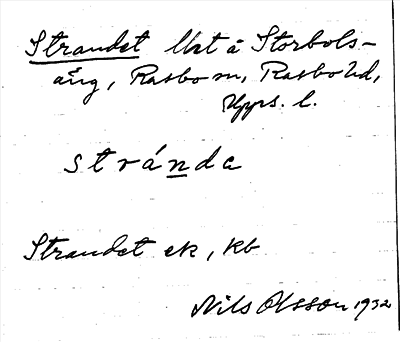 Strandet Urt å Storbols-
äng, Rasbo sn, Rasbo hd,
Upps. l.
stránda
Strandet ek, kb
Nils Olsson 1932